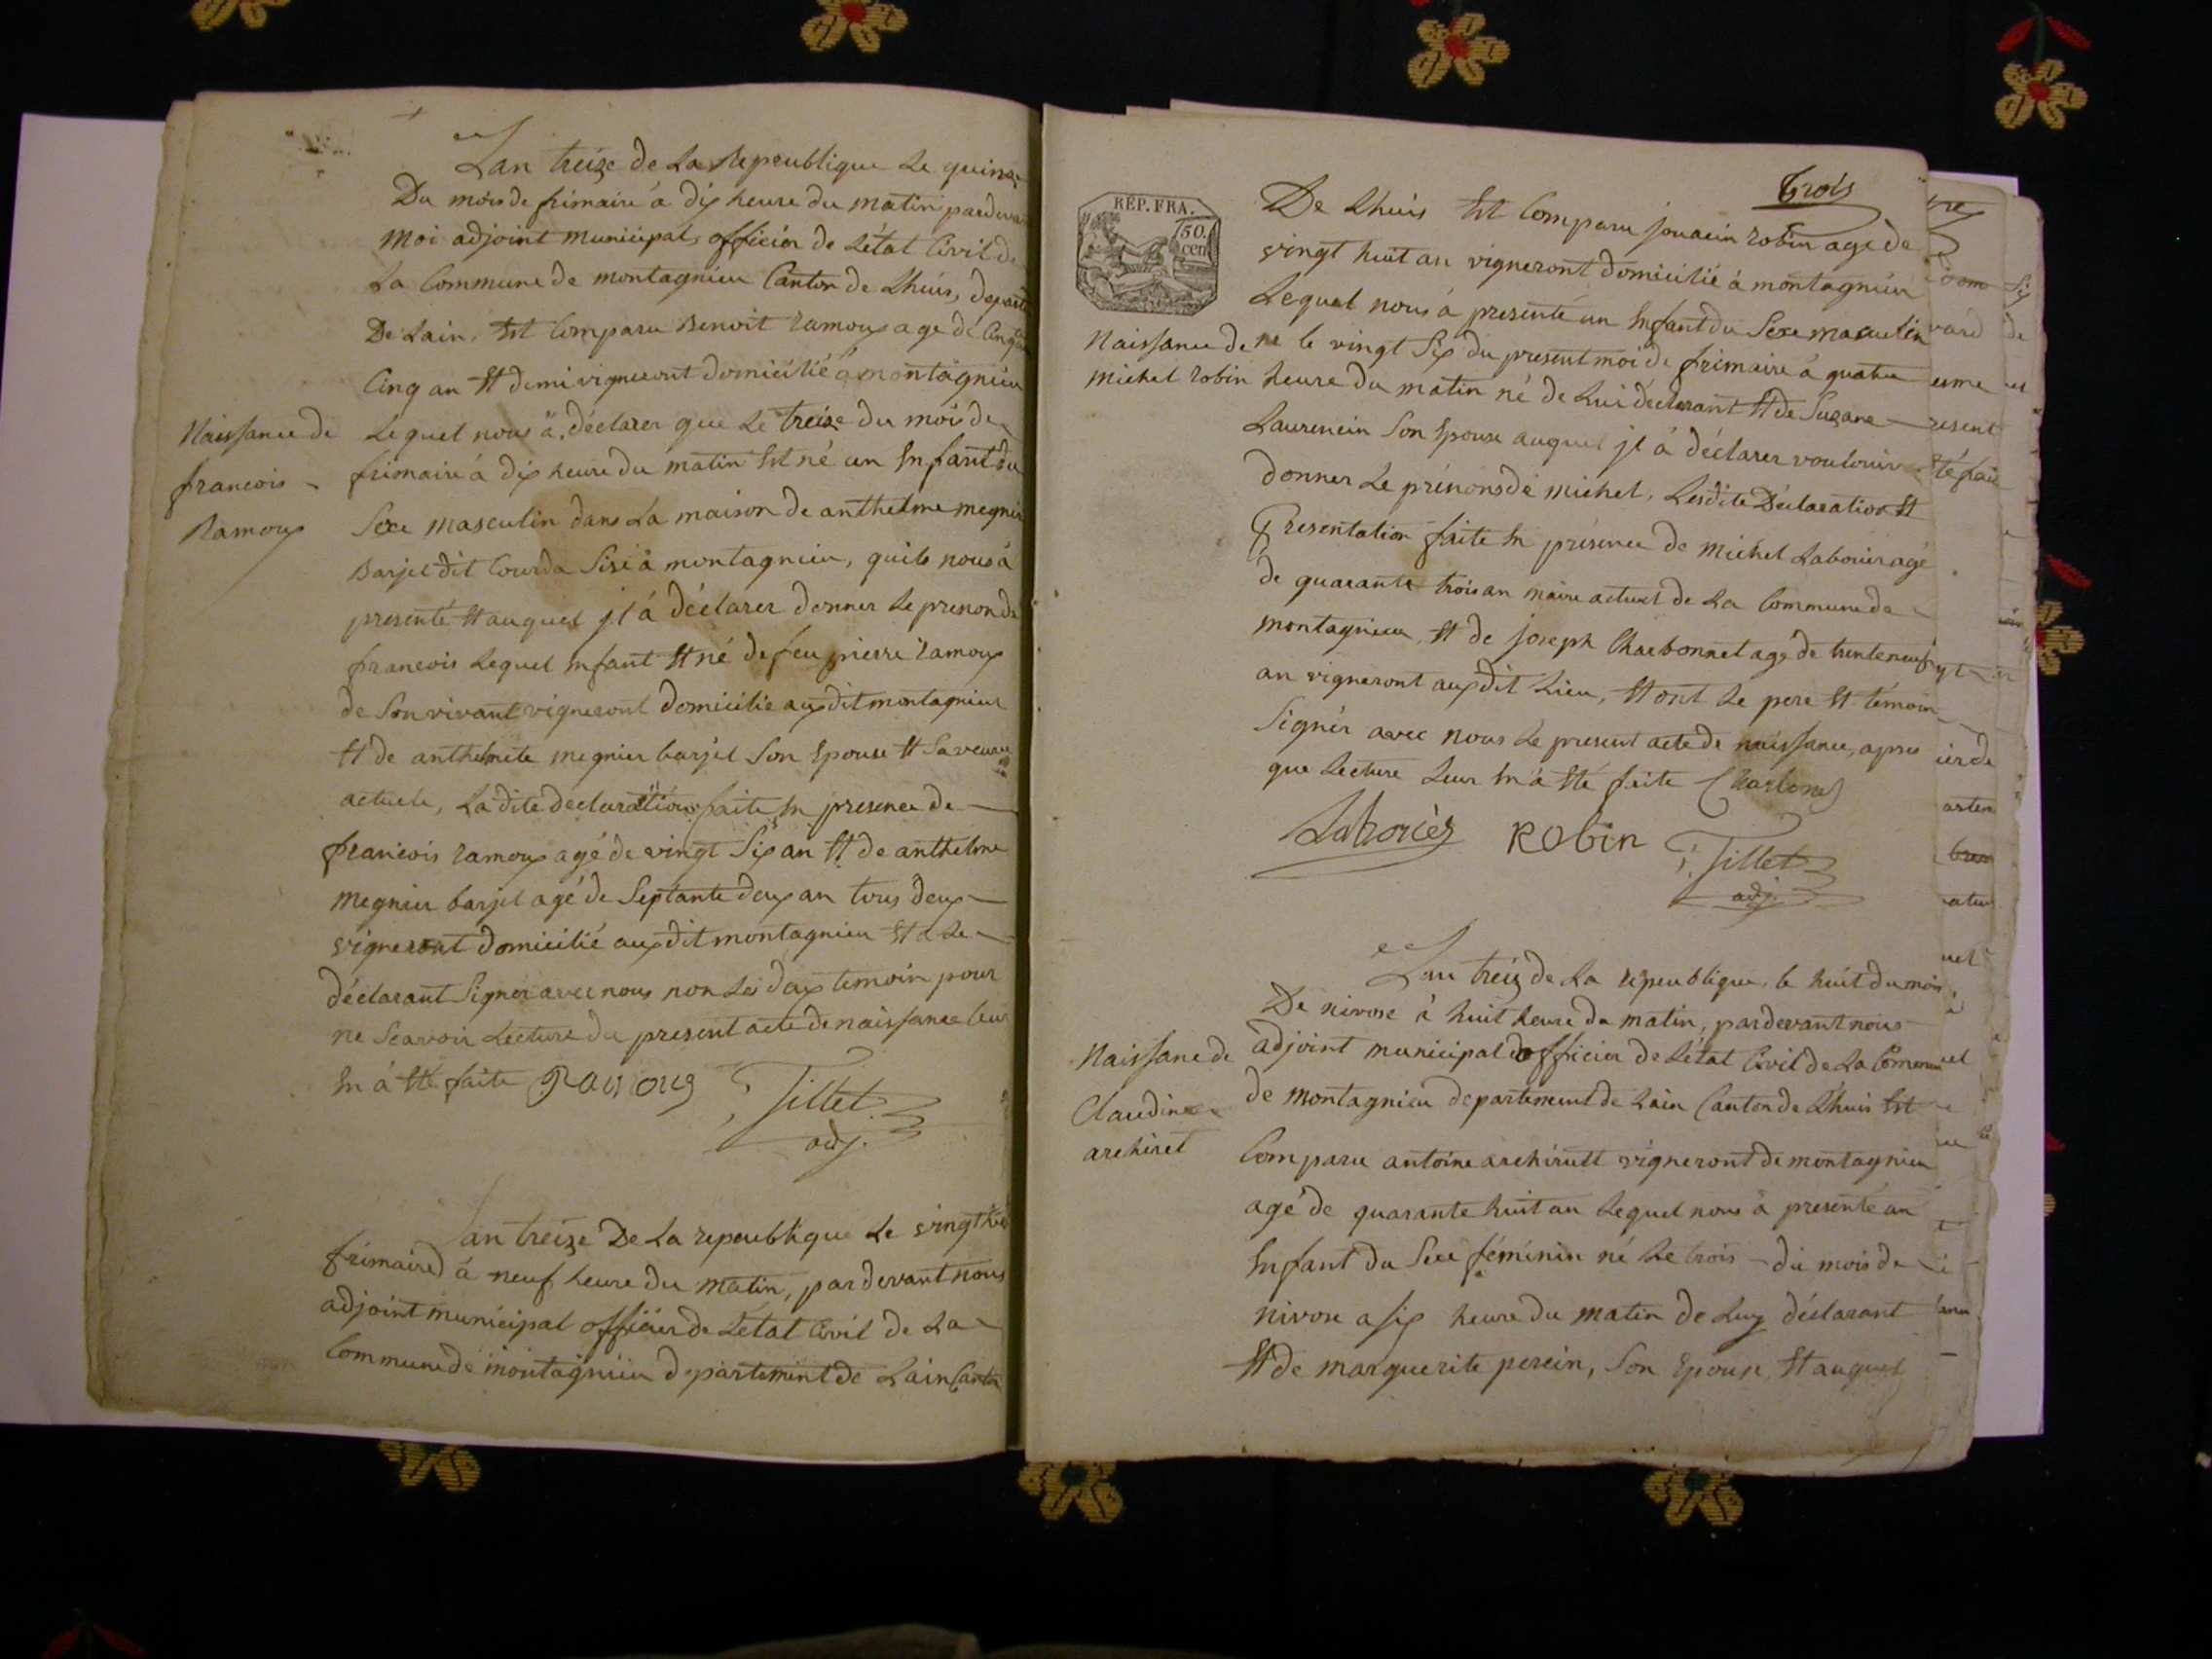 Lan treize de La Repeublique Le quinze
Du mois de frimaire à dix heure du matin pardeva
Moi adjoint municipal, officier de Létat Civil de
La Commune de montagnieu Canton de Lhuis, departe
De Lain, Est Comparu Benoit ramoux age de Cinqu
Cinq an Et demi vigneront domicilié à montagnieu
Naissance de
francois
Ramoux
Lequel nous à déclarer que Le treize du mois de
frimaire à dix heure du matin Est né un Enfant du
Sexe masculin dans La maison de anthelme megnier
Barjel dit Courda Sise à montagnieu, quils nous à
presenté Et auquel jl à déclarer donner Le prenon de
francois Lequel Enfant Et né de feu pierre ramoux
de Son vivant vigneront domicilié aux dit montagnieu
Et de anthelmete megnier barjel Son Epouse Et Sa veuve
actuele, La dite declaration faite En presence de
francois ramoux agé de vingt Six an Et de anthelme
megnier barjel agé de Septante deux an tous deux
vigneront domicilié aux dit montagnieu Et Le
déclarant Signer avec nous non Les deux temoin pour
ne Scavoir Lecture du present acte de naissance leur
En à Eté faite Ramoux Tillet
adj.
Lan treize De La repeublique Le vingt huit
frimaire à neuf heure du matin, par devant nous
adjoint municipal officier de Létat Civil de La
Commune de montagnieu departement de Lain Canton
trois
RÉP. FRA.
50.
cen
De Lhuis Est Comparu jouacin robin age de
vingt huit an vigneront domicilié à montagnieu
Lequel nous à presenté un Enfant du Sexe masculin
Naissance de
Michel robin
ne le vingt Six du present moi de frimaire à quatre
heure du matin né de Lui déclarant Et de Suzane
Laurencin Son Epouse auquel jl à déclarer voulouir
donner Le prénons de michel, Lesdite Déclaration Et
Presentation faite En présence de Michel Labouir agé
de quarante trois an maire actuel de La Commune de
montagnieu, Et de joseph Charbonnet agé de trente neuf
an vigneront aux dit Lieu, Et ont Le pere Et témoin
Signér avec nous Le present acte de naissance, apres
que Lecture Leur En à Eté faite Charbonet
Labouèr RObin Tillet
adj.
Lan treiz de La répeublique, le huit du moi
De nivose à huit heure du matin, pardevant nous
Naissance de
Claudine
archiret
adjoint municipal officier de Létat Civil de La Commune
de montagnieu departement de Lain Canton de Lhuis Est
Comparu antoine archirett vigneront de montagnieu
agé de quarante huit an Lequel nous à presenté un
Enfant du Sexe féminin né Le trois du mois de
nivose a six heure du matin de Luy déclarant
Et de marguerite perein, Son Epouse, Et auquel